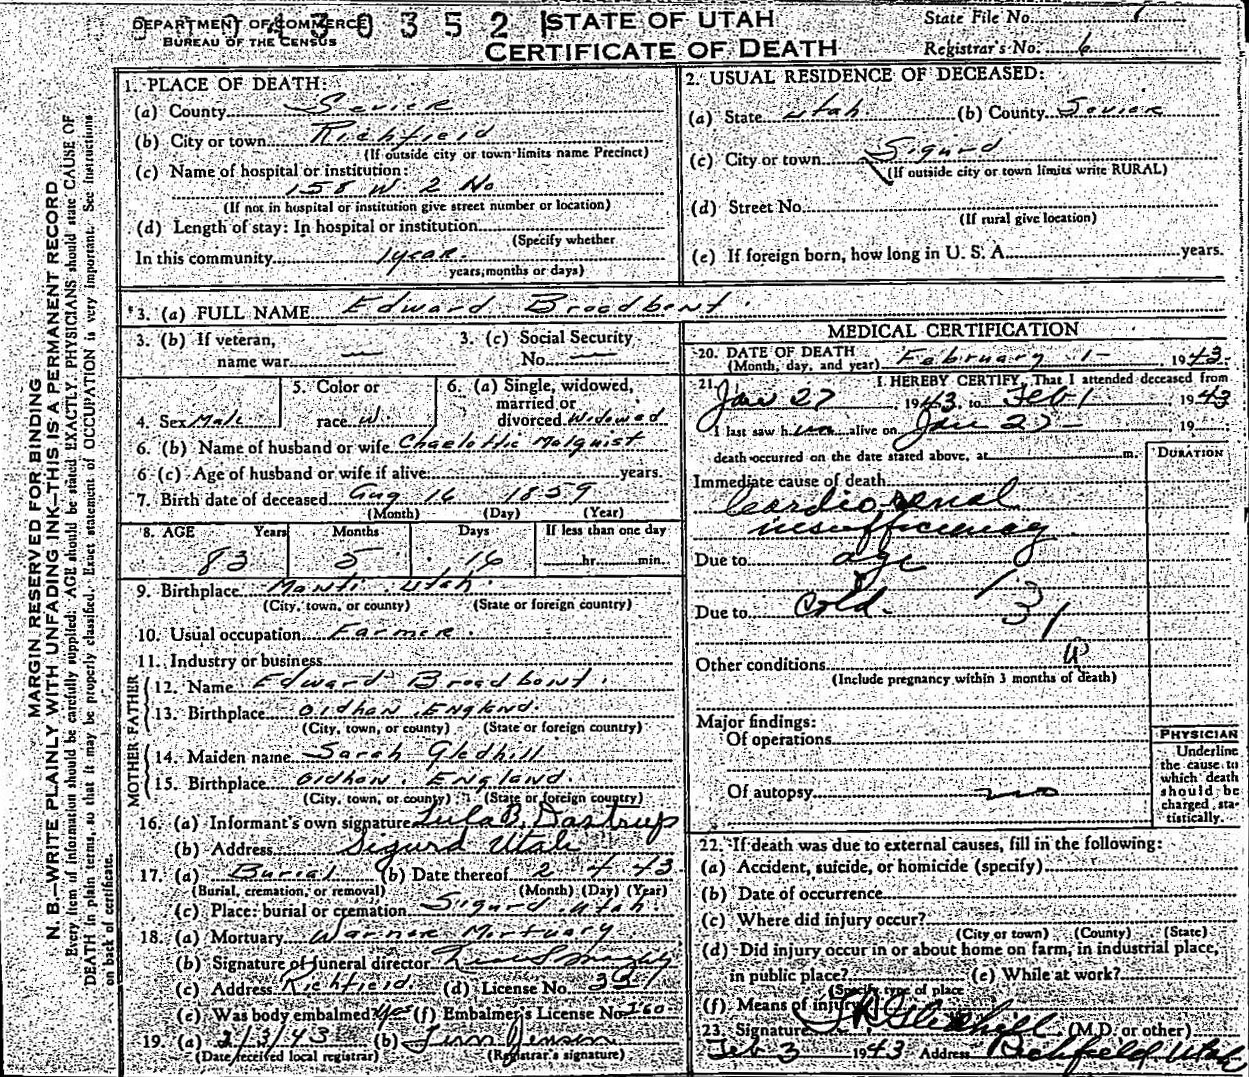 DEPARTMENT OF COMMERCE
BUREAU OF THE CENSUS
430352
STATE OF UTAH
CERTIFICATE OF DEATH
State File No.
Registrar's No. 6
MARGIN RESERVED FOR BINDING
N. B.—WRITE PLAINLY WITH UNFADING INK—THIS IS A PERMANENT RECORD
Every item of information should be carefully supplied. AGE should be stated EXACTLY. PHYSICIANS should state CAUSE OF
DEATH in plain terms, so that it may be properly classified. Exact statement of OCCUPATION is very important. See instructions
on back of certificate.
1. PLACE OF DEATH:
(a) County Sevier
(b) City or town Richfield
(If outside city or town limits name Precinct)
(c) Name of hospital or institution:
158 W. 2 No
(If not in hospital or institution give street number or location)
(d) Length of stay: In hospital or institution
(Specify whether
In this community 1 year
years, months or days)
2. USUAL RESIDENCE OF DECEASED:
(a) State Utah (b) County Sevier
(c) City or town Sigurd
(If outside city or town limits write RURAL)
(d) Street No.
(If rural give location)
(e) If foreign born, how long in U. S. A. years.
3. (a) FULL NAME Edward Broadbent.
3. (b) If veteran,
name war —
3. (c) Social Security
No. —
4. Sex Male
5. Color or
race W
6. (a) Single, widowed,
married or
divorced Widowed
6. (b) Name of husband or wife Charlottie Malquist
6 (c) Age of husband or wife if alive years.
7. Birth date of deceased Aug 16 1859
(Month) (Day) (Year)
8. AGE Years Months Days If less than one day
83 5 16 hr. min.
9. Birthplace Manti Utah.
(City, town, or county) (State or foreign country)
10. Usual occupation Farmer.
11. Industry or business
FATHER
12. Name Edward Broadbent.
13. Birthplace Oldham, England.
(City, town, or county) (State or foreign country)
MOTHER
14. Maiden name Sarah Gledhill
15. Birthplace Oldham, England.
(City, town, or county) (State or foreign country)
16. (a) Informant's own signature Lula B. Dastrup
(b) Address Sigurd Utah
17. (a) Burial (b) Date thereof 2 4 43
(Burial, cremation, or removal) (Month) (Day) (Year)
(c) Place: burial or cremation Sigurd Utah.
18. (a) Mortuary Warner Mortuary.
(b) Signature of funeral director
(c) Address Richfield. (d) License No.
(e) Was body embalmed? Yes (f) Embalmer's License No. 160
19. (a) 2/3/43 (b) Jensen
(Date received local registrar) (Registrar's signature)
MEDICAL CERTIFICATION
20. DATE OF DEATH
(Month, day, and year) February 1- 1943.
21. I HEREBY CERTIFY, That I attended deceased from
Jan 27, 1943, to Feb 1 1943
I last saw him alive on Jan 27- 19
death occurred on the date stated above, at m.
DURATION
Immediate cause of death
Cardio renal
insufficiency
Due to age
Due to Cold.
Other conditions
(Include pregnancy within 3 months of death)
Major findings:
Of operations
Of autopsy no
PHYSICIAN
Underline
the cause to
which death
should be
charged, sta-
tistically.
22. If death was due to external causes, fill in the following:
(a) Accident, suicide, or homicide (specify)
(b) Date of occurrence
(c) Where did injury occur?
(City or town) (County) (State)
(d) Did injury occur in or about home on farm, in industrial place,
in public place? (e) While at work?
(Specify type of place
(f) Means of injury
23. Signature Gledhill (M.D. or other)
Feb 3 1943 Address Richfield, Utah